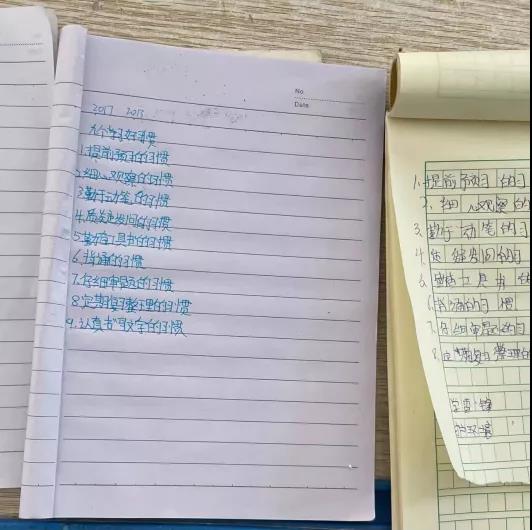 No
Date
2017 2018
个学习好习惯
1.提前预习的习惯
2.细心观察的习惯
3.勤于动笔的习惯
4.质疑提问的习惯
5.勤查工具书的习惯
6.背诵的习惯
7.仔细审题的习惯
8.定期复习整理的习惯
9.认真书写文字的习惯
1.提前预习的习
2.细心观察的
3.勤于动笔的习
4.质疑提问的习
5.勤查工具书的
6.背诵的习惯
7.仔细审题的习
8.定期复习整理的
学雷锋